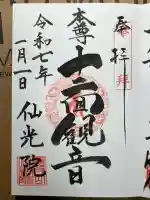 奉拝
本尊
十一面観音
令和七年
一月一日
仙光院